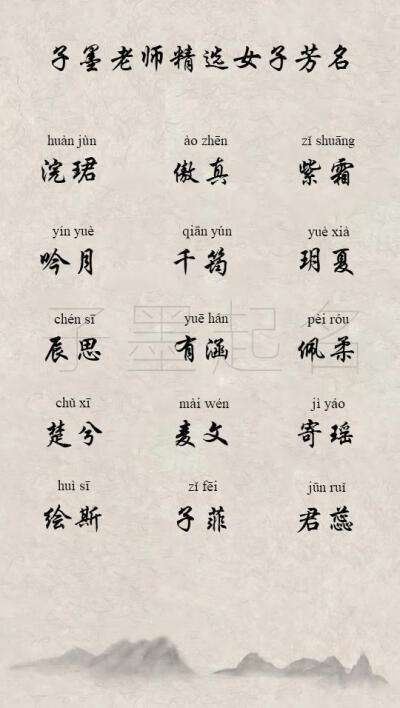 子墨老师精选女子芳名
huàn jùn ào zhēn zǐ shuāng
浣珺 傲真 紫霜
yín yuè qiān yún yuè xià
吟月 千筠 玥夏
chén sī yuē hán pèi róu
辰思 有涵 佩柔
子墨起名
chǔ xī mài wén jì yáo
楚兮 麦文 寄瑶
huì sī zǐ fēi jūn ruǐ
绘斯 子菲 君蕊